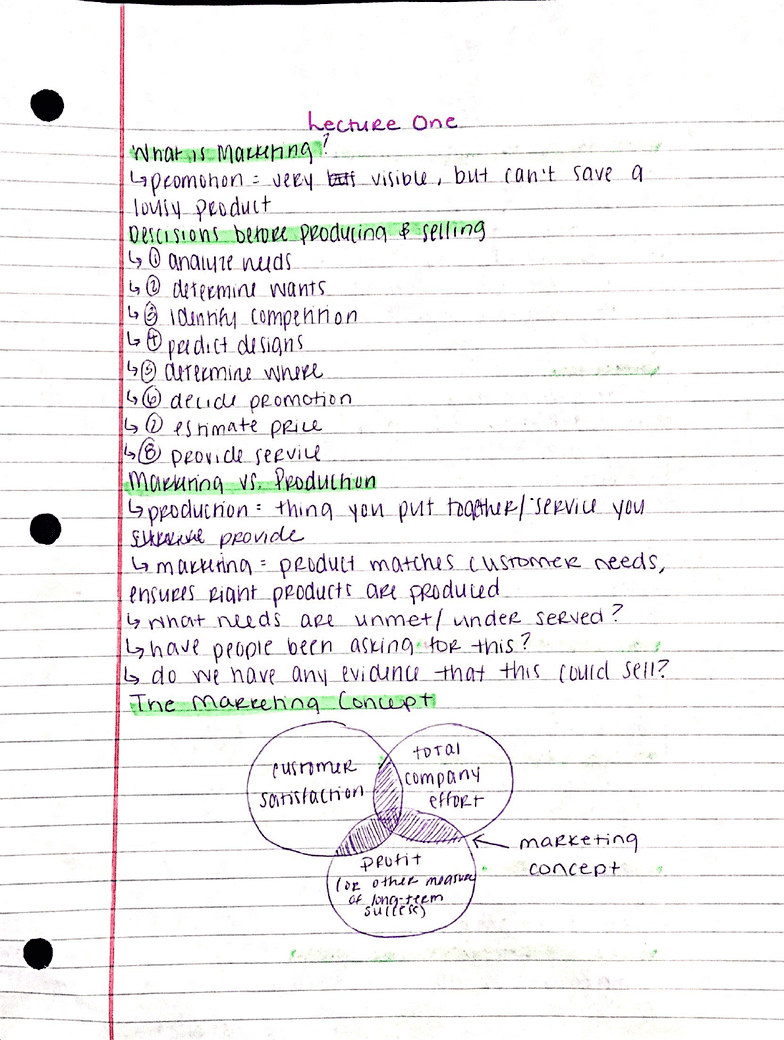 Lecture One
What is Marketing?
↳promotion = very visible, but can't save a
lousy product
Descisions before producing & selling
↳① analyze needs
↳② determine wants
↳③ identify competition
↳④ predict designs
↳⑤ determine where
↳⑥ decide promotion
↳⑦ estimate price
↳⑧ provide service
Marketing vs. Production
↳production = thing you put together/service you
provide
↳marketing = product matches customer needs,
ensures right products are produced
↳what needs are unmet/under served?
↳have people been asking for this?
↳do we have any evidence that this could sell?
The Marketing Concept
customer
satisfaction
total
company
effort
marketing
concept
profit
(or other measure
of long-term
success)